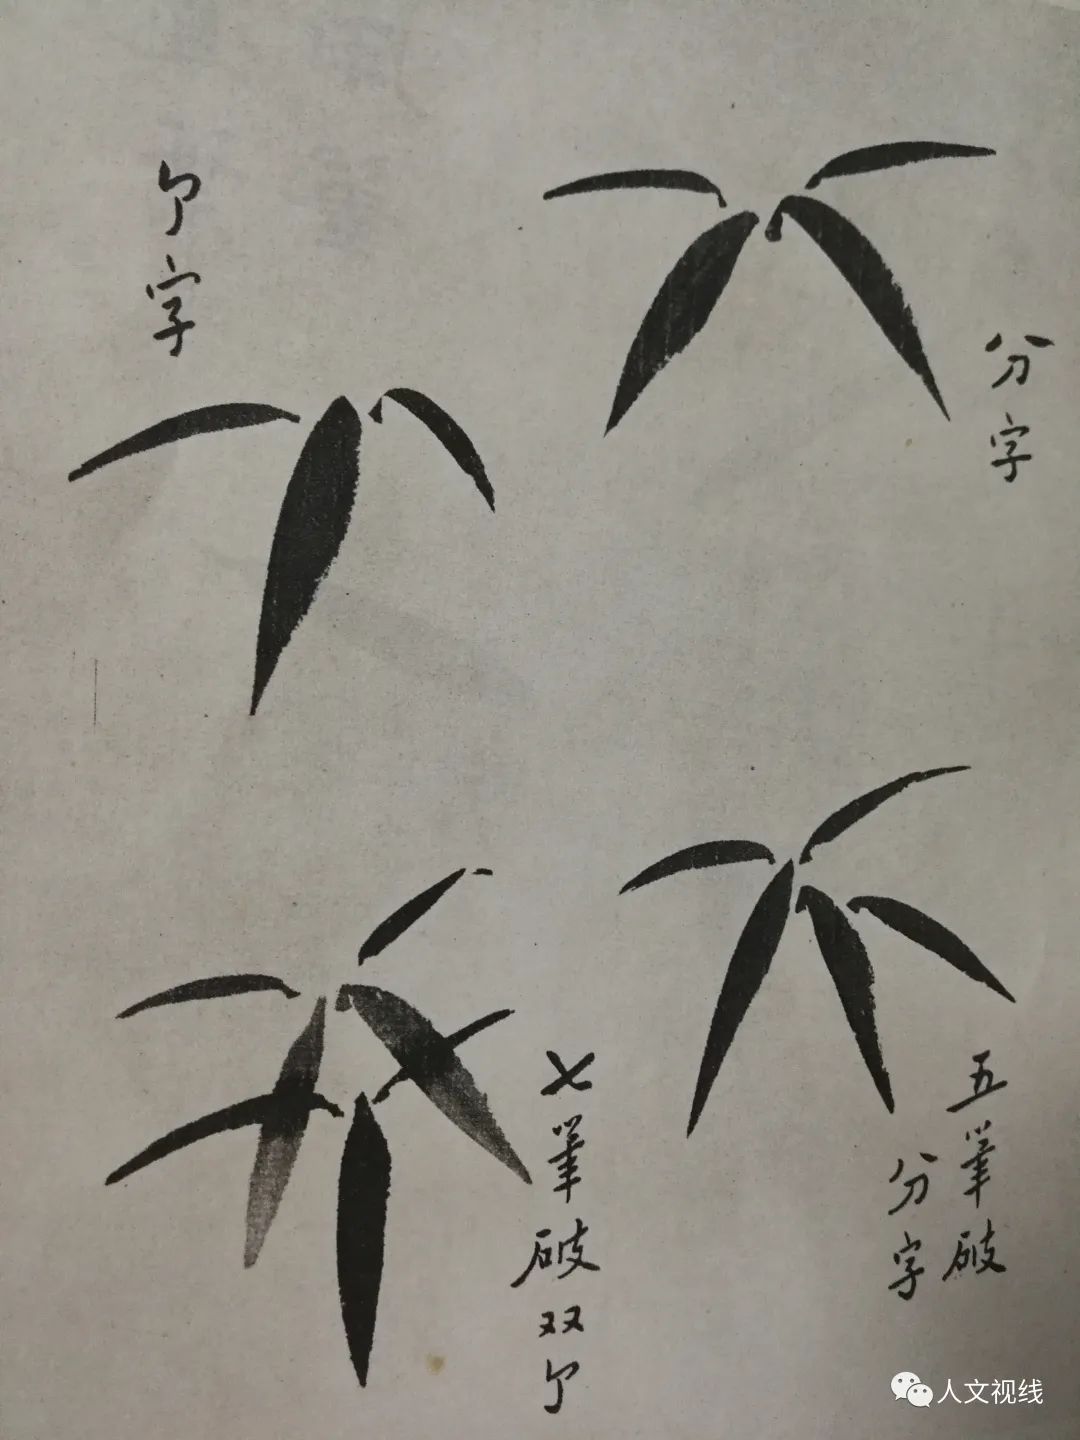 亇字
分字
七筆破双亇
五筆破
分字
人文视线